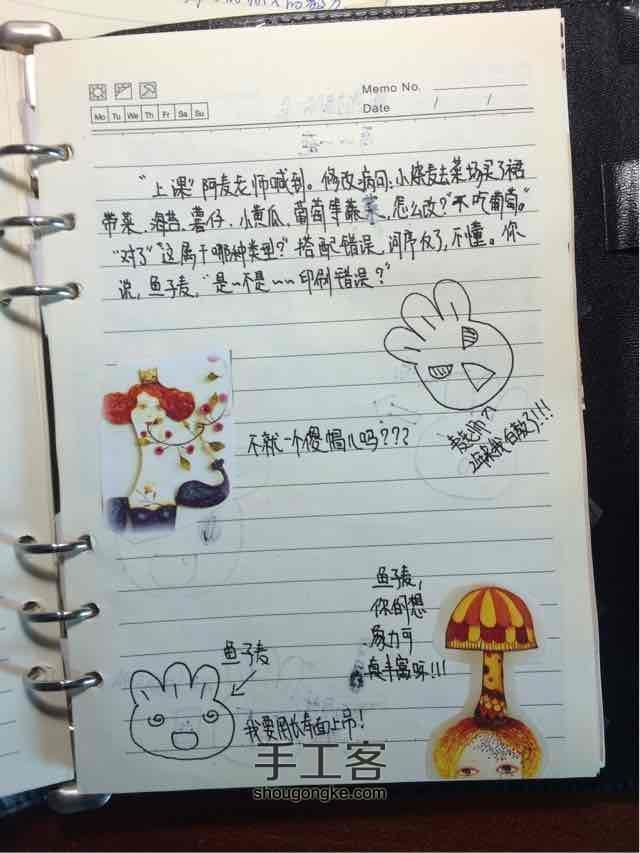 Memo No.
Mo Tu We Th Fr Sa Su
Date / /
“上课”阿麦老师喊到。修改病句:小嫁麦去菜场买了裙
带菜、海苔、薯仔、小黄瓜、葡萄等蔬菜,怎么改?“不吃葡萄。”
“对了”这属于哪种类型?搭配错误,词序反了,不懂。你
说,鱼子麦,“是~不是~~印刷错误?”
不就一个傻帽儿吗???
麦老师
年来我白教了!!!
鱼子麦,
你的想
象力可
真丰富呀!!!
鱼子麦
我要用长寿面上吊!
手工客
shougongke.com